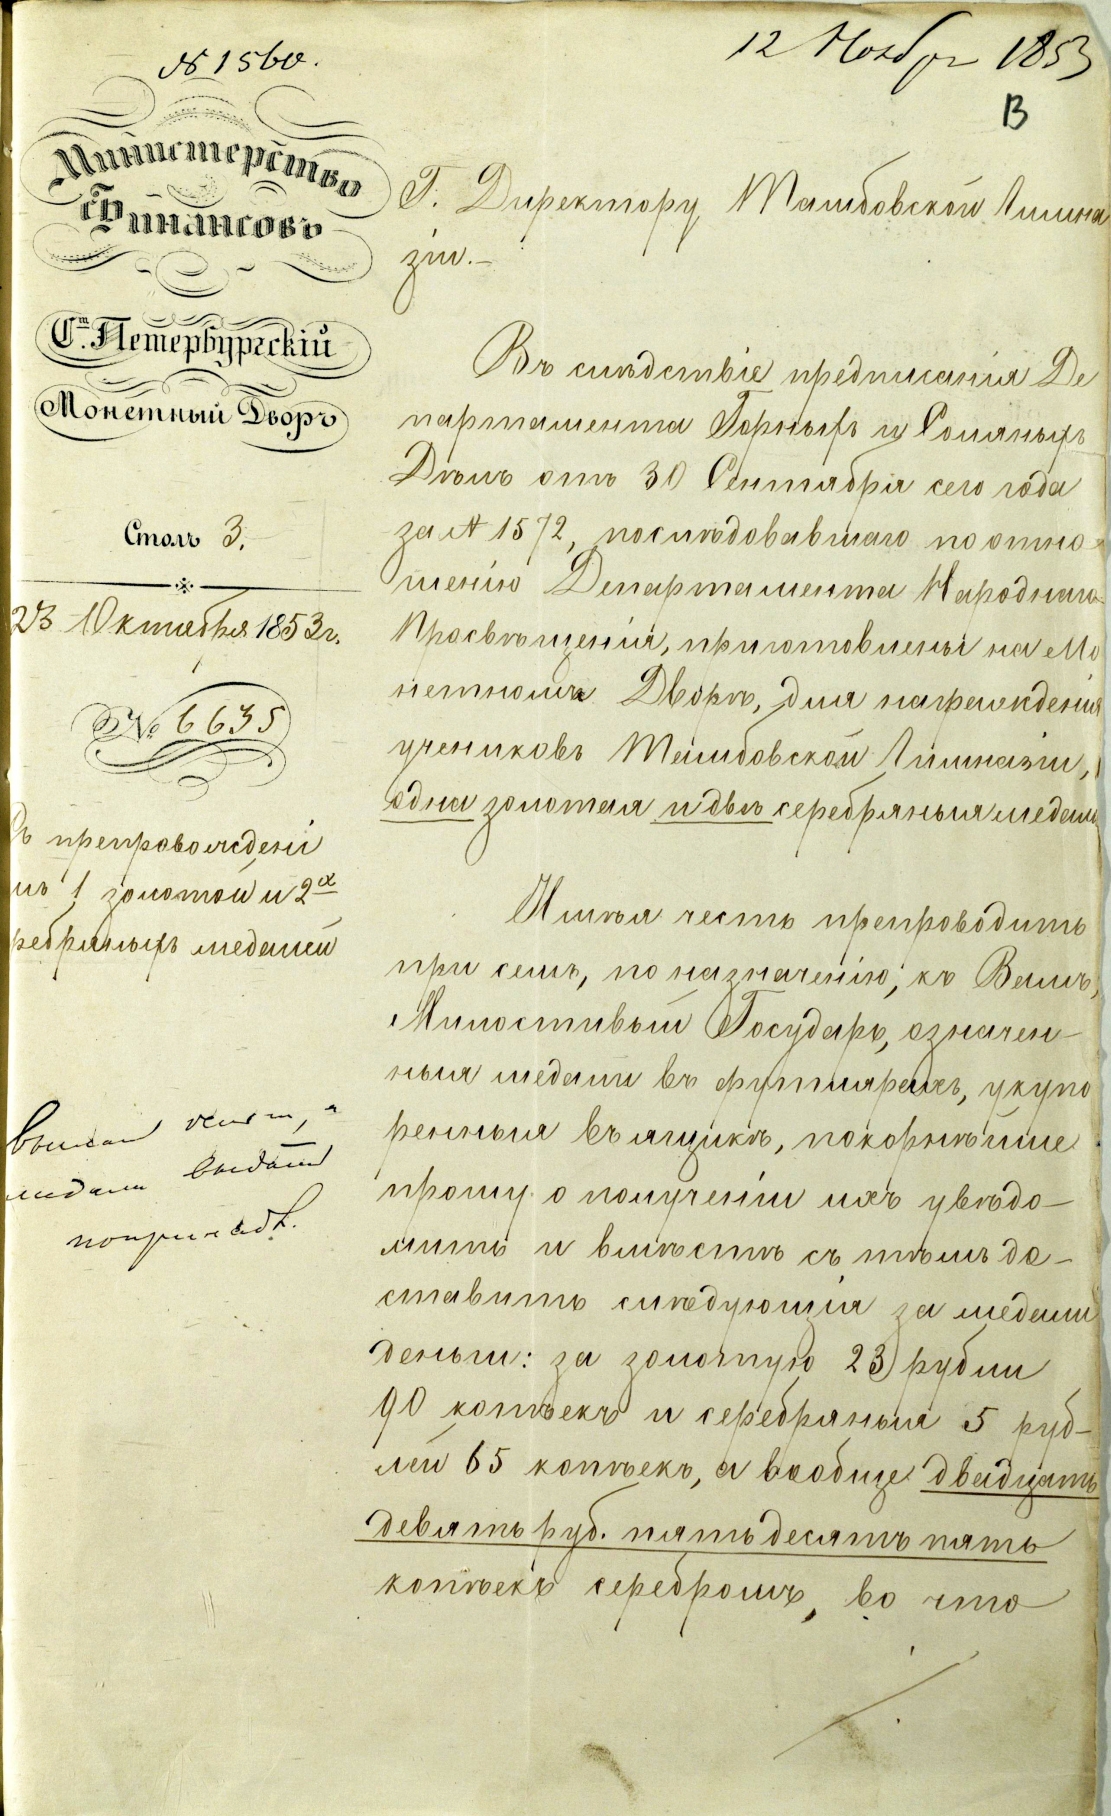 № 1560.
12 Ноября 1853
В
Министерство
Финансовъ
С.т Петербургскій
Монетный Дворъ
Столъ 3.
23 Октября 1853 г.
№ 6635
Съ препровожденi
мъ 1 золотой и 2х
ребряныхъ медалей
медали выдать
Г. Директору Тамбовской Гимна
зіи.–
Въ слѣдствіе предписанія Де
партамента Горныхъ и Соляныхъ
Дѣлъ отъ 30 Сентября сего года
за № 1572, послѣдовавшаго по отно-
шенію Департамента Народнаго
Просвѣщенія, приготовлены на Мо
нетномъ Дворѣ, для награжденія
учениковъ Тамбовской Гимназіи,
одна золотая и двѣ серебряныя медали
Имѣя честь препроводить
при семъ, по назначенію, къ Вамъ,
Милостивый Государь, означен-
ныя медали въ футлярахъ, укупо
ренныя въ ящикѣ, покорнѣйше
прошу о полученіи ихъ увѣдо-
мить и вмѣстѣ съ тѣмъ до-
ставить слѣдующія за медали
деньги: за золотую 23 рубли
90 копѣекъ и серебряныя 5 руб-
лей 65 копѣекъ, а вообще двадцать
девять руб. пятьдесятъ пять
копѣекъ серебромъ, во что